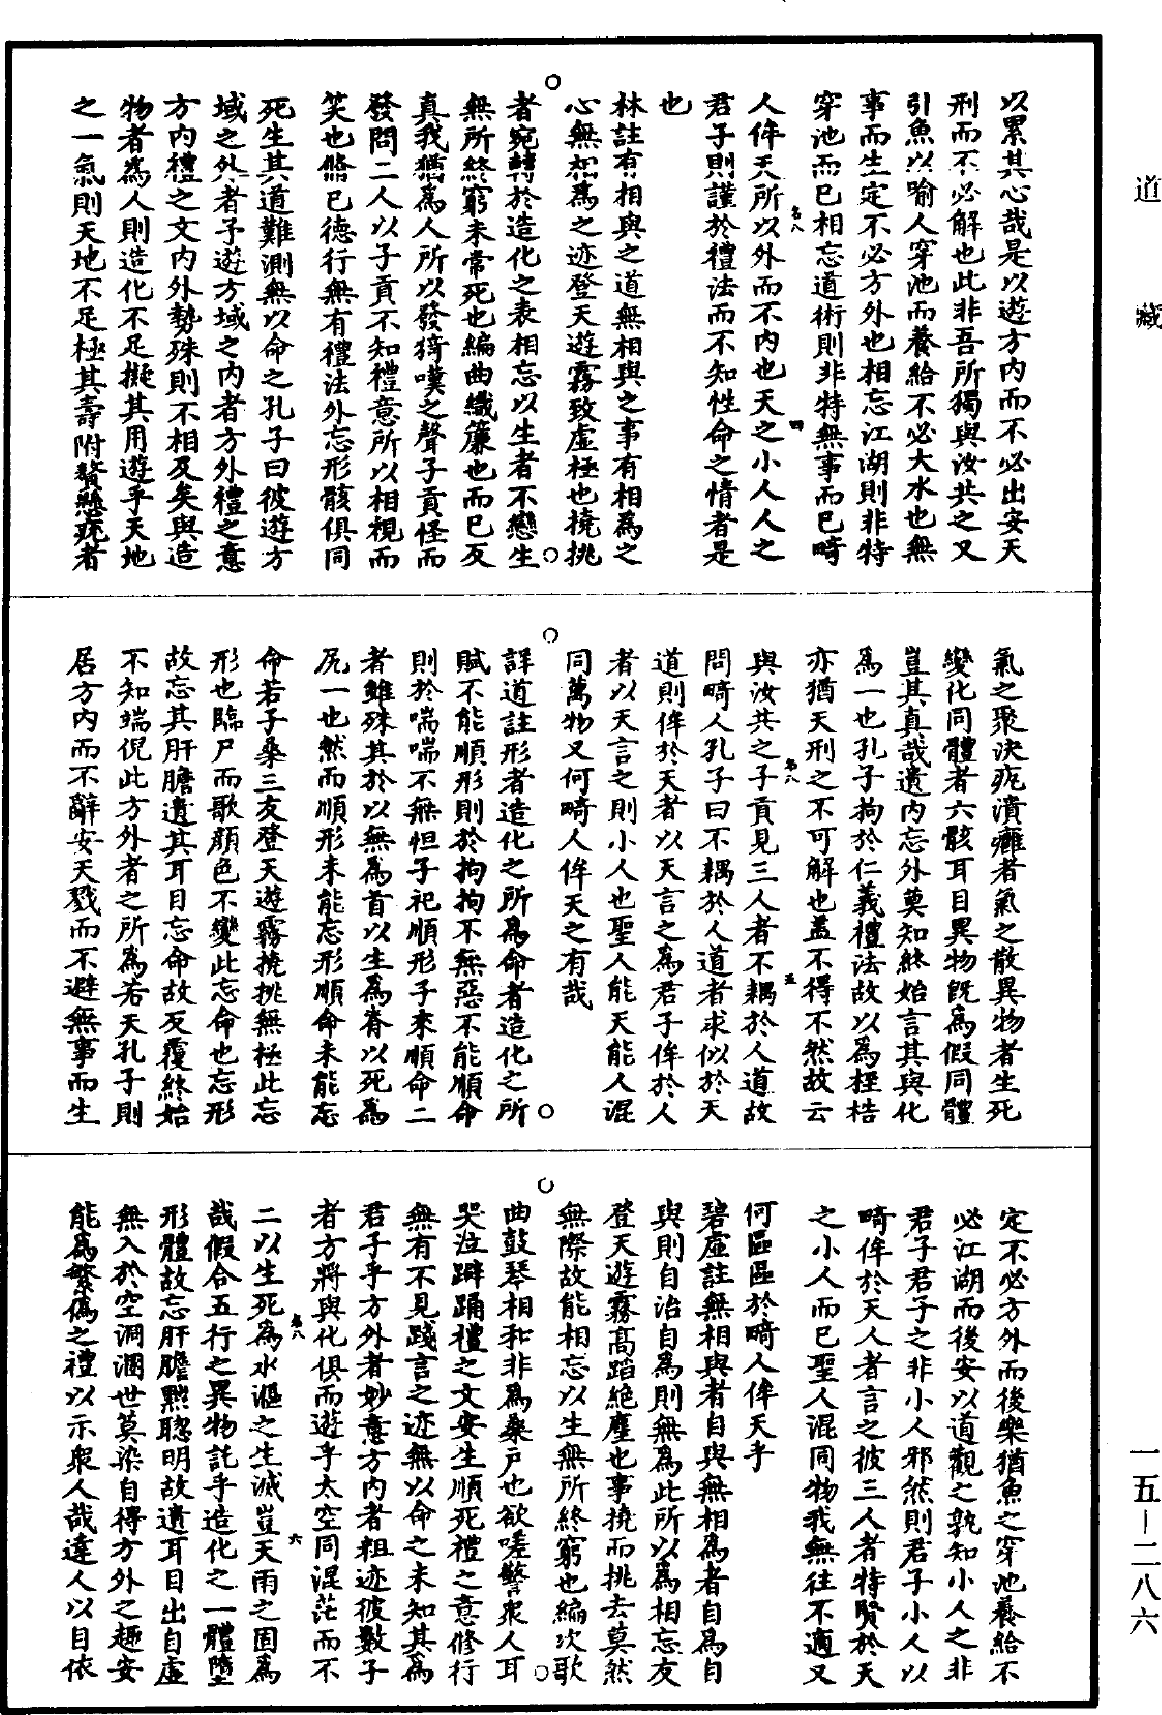 道藏
以累其心哉是以遊方內而不必出安天
刑而不必解也此非吾所獨與汝共之又
引魚以喻人穿池而養給不必大水也無
事而生定不必方外也相忘江湖則非特
穿池而已相忘道術則非特無事而已畸
人侔天所以外而不內也天之小人人之
君子則謹於禮法而不知性命之情者是
也
林註有相與之道無相與之事有相為之
心無相為之迹登天遊霧致虛極也撓挑
者宛轉於造化之表相忘以生者不戀生
無所終窮未常死也編曲織簾也而已反
真我猶為人所以發猗嘆之聲子貢怪而
發問二人以子貢不知禮意所以相視而
笑也脩已德行無有禮法外忘形骸俱同
死生其道難測無以命之孔子曰彼遊方
域之外者予遊方域之內者方外禮之意
方內禮之文內外勢殊則不相及矣與造
物者為人則造化不足擬其用遊乎天地
之一氣則天地不足極其壽附贅懸疣者
氣之聚決疣潰癰者氣之散異物者生死
變化同體者六骸耳目異物旣為假同體
豈其真哉遺內忘外莫知終始言其與化
為一也孔子拘於仁義禮法故以為桎梏
亦猶天刑之不可解也蓋不得不然故云
與汝共之子貢見三人者不耦於人道故
問畸人孔子曰不耦於人道者求似於天
道則侔於天者以天言之為君子侔於人
者以天言之則小人也聖人能天能人混
同萬物又何畸人侔天之有哉
詳道註形者造化之所為命者造化之所
賦不能順形則於拘拘不無惡不能順命
則於喘喘不無怛子祀順形子來順命二
者雖殊其於以無為首以生為脊以死為
尻一也然而順形未能忘形順命未能忘
命若子桑三友登天遊霧撓挑無極此忘
形也臨尸而歌顏色不變此忘命也忘形
故忘其肝膽遺其耳目忘命故反覆終始
不知端倪此方外者之所為若夫孔子則
居方內而不辭安天戮而不避無事而生
定不必方外而後樂猶魚之穿池養給不
必江湖而後安以道觀之孰知小人之非
君子君子之非小人邪然則君子小人以
畸侔於天人者言之彼三人者特賢於天
之小人而已聖人混同物我無往不適又
何區區於畸人侔天乎
碧虛註無相與者自與無相為者自為自
與則自治自為則無為此所以為相忘友
登天遊霧高蹈絶塵也事撓而挑去莫然
無際故能相忘以生無所終窮也編次歌
曲鼓琴相和非為桑戶也欲嗟警眾人耳
哭泣躃踊禮之文安生順死禮之意修行
無有不見踐言之迹無以命之未知其為
君子乎方外者妙意方內者粗迹彼數子
者方將與化俱而遊乎太空同混茫而不
二以生死為水漚之生滅豈天雨之固為
哉假合五行之異物託乎造化之一體墮
形體故忘肝膽黜聰明故遺耳目出自虛
無入於空洞溷世莫染自得方外之趣安
能為繁偽之禮以示眾人哉達人以目依
一五－二八六